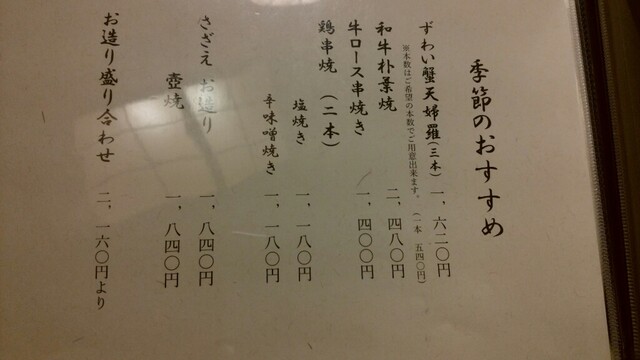 季節のおすすめ
ずわい蟹天婦羅(三本) 一、六二〇円
※本数はご希望の本数でご用意出来ます。 (一本 五四〇円)
和牛朴葉焼 二、四八〇円
牛ロース串焼き 一、四〇〇円
鶏串焼 (二本)
塩焼き 一、一八〇円
辛味噌焼き 一、一八〇円
さざえ お造り 一、八四〇円
壺焼 一、八四〇円
お造り盛り合わせ 二、一六〇円より